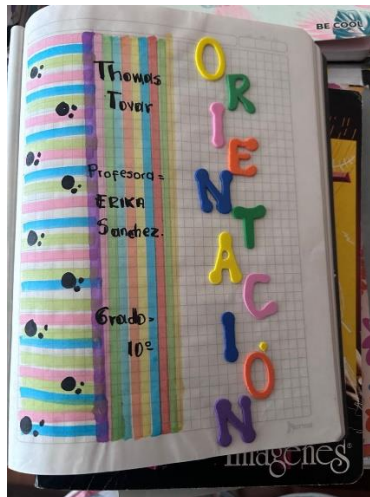 BE COOL
Thomas
Tovar
Profesora =
ERIKA
Sanchez.
Grado =
10º
ORIENTACIÓN
Imagenes